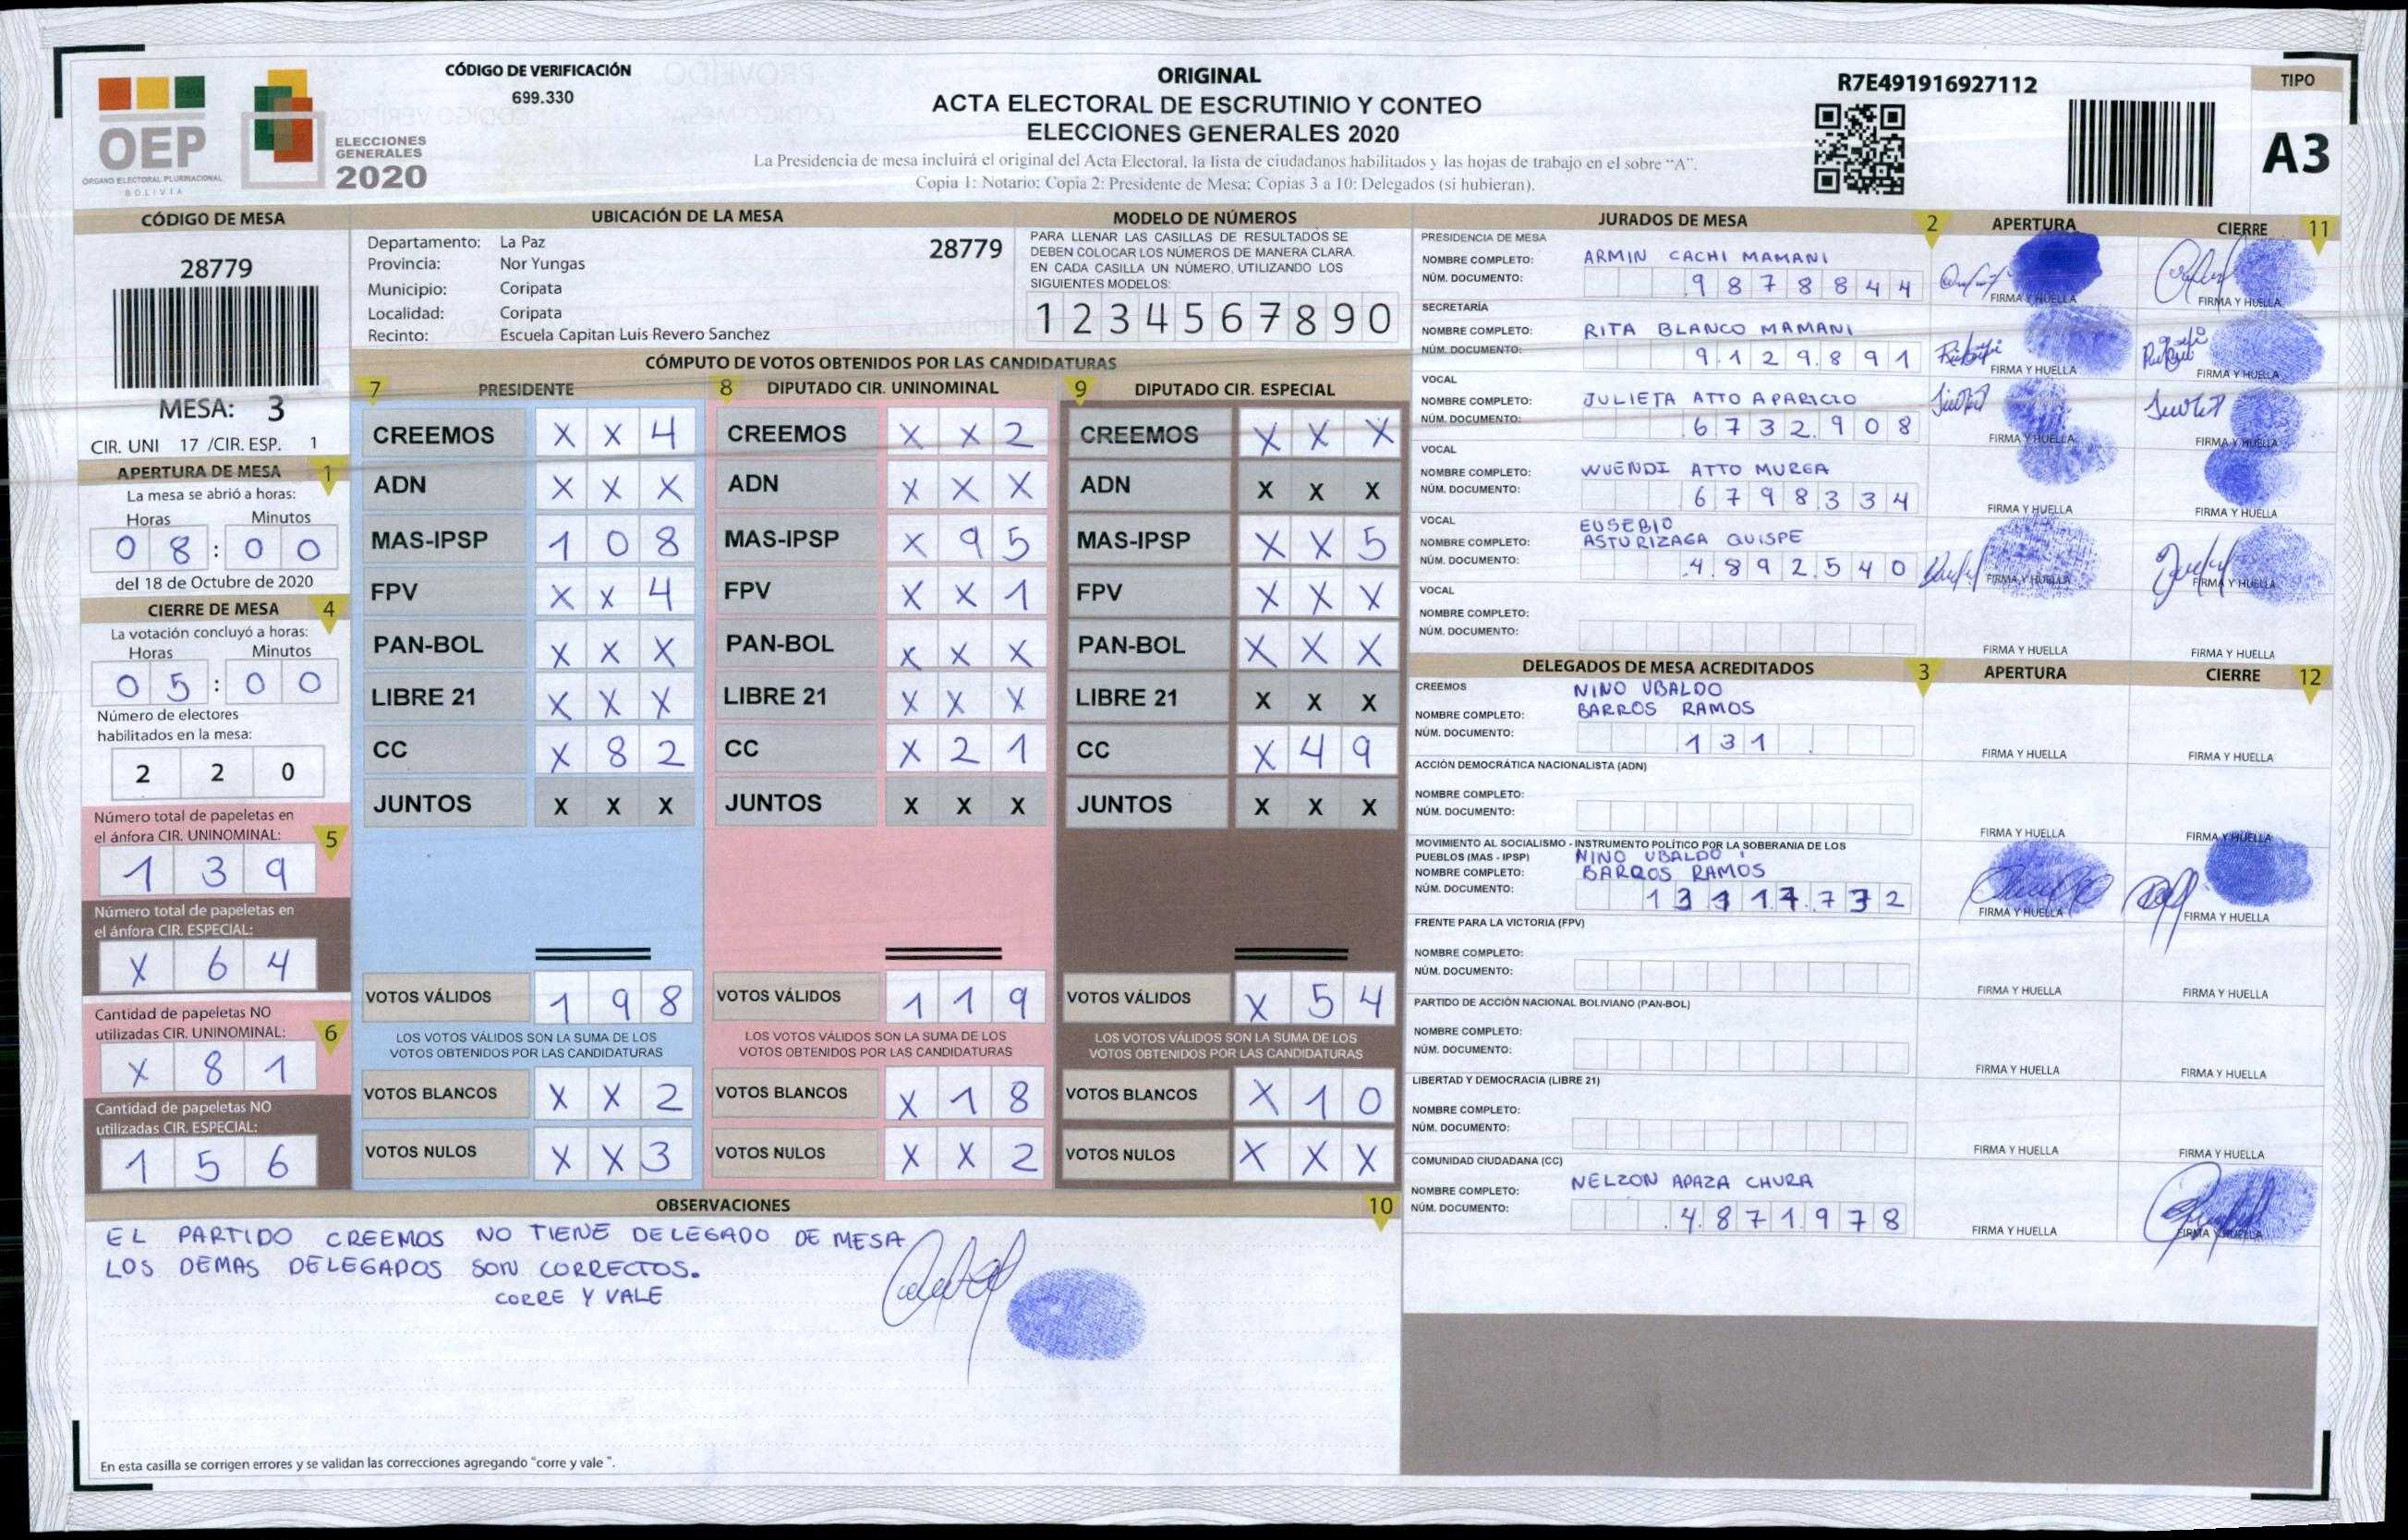 CÓDIGO DE VERIFICACIÓN
699.330
OEP
ÓRGANO ELECTORAL PLURINACIONAL
BOLIVIA
ELECCIONES
GENERALES
2020
ORIGINAL
ACTA ELECTORAL DE ESCRUTINIO Y CONTEO
ELECCIONES GENERALES 2020
La Presidencia de mesa incluirá el original del Acta Electoral, la lista de ciudadanos habilitados y las hojas de trabajo en el sobre “A”.
Copia 1: Notario; Copia 2: Presidente de Mesa; Copias 3 a 10: Delegados (si hubieran).
R7E491916927112
TIPO
A3
CÓDIGO DE MESA
28779
MESA: 3
CIR. UNI 17 /CIR. ESP. 1
APERTURA DE MESA 1
La mesa se abrió a horas:
Horas Minutos
0 8 : 0 0
del 18 de Octubre de 2020
CIERRE DE MESA 4
La votación concluyó a horas:
Horas Minutos
0 5 : 0 0
Número de electores
habilitados en la mesa:
2 2 0
Número total de papeletas en
el ánfora CIR. UNINOMINAL: 5
1 3 9
Número total de papeletas en
el ánfora CIR. ESPECIAL:
X 6 4
Cantidad de papeletas NO
utilizadas CIR. UNINOMINAL: 6
X 8 1
Cantidad de papeletas NO
utilizadas CIR. ESPECIAL:
1 5 6
UBICACIÓN DE LA MESA
Departamento: La Paz 28779
Provincia: Nor Yungas
Municipio: Coripata
Localidad: Coripata
Recinto: Escuela Capitan Luis Revero Sanchez
MODELO DE NÚMEROS
PARA LLENAR LAS CASILLAS DE RESULTADOS SE
DEBEN COLOCAR LOS NÚMEROS DE MANERA CLARA.
EN CADA CASILLA UN NÚMERO, UTILIZANDO LOS
SIGUIENTES MODELOS:
1 2 3 4 5 6 7 8 9 0
CÓMPUTO DE VOTOS OBTENIDOS POR LAS CANDIDATURAS
7 PRESIDENTE 8 DIPUTADO CIR. UNINOMINAL 9 DIPUTADO CIR. ESPECIAL
CREEMOS X X 4 CREEMOS X X 2 CREEMOS X X X
ADN X X X ADN X X X ADN X X X
MAS-IPSP 1 0 8 MAS-IPSP X 9 5 MAS-IPSP X X 5
FPV X X 4 FPV X X 1 FPV X X X
PAN-BOL X X X PAN-BOL X X X PAN-BOL X X X
LIBRE 21 X X X LIBRE 21 X X X LIBRE 21 X X X
CC X 8 2 CC X 2 1 CC X 4 9
JUNTOS X X X JUNTOS X X X JUNTOS X X X
VOTOS VÁLIDOS 1 9 8 VOTOS VÁLIDOS 1 1 9 VOTOS VÁLIDOS X 5 4
LOS VOTOS VÁLIDOS SON LA SUMA DE LOS LOS VOTOS VÁLIDOS SON LA SUMA DE LOS LOS VOTOS VÁLIDOS SON LA SUMA DE LOS
VOTOS OBTENIDOS POR LAS CANDIDATURAS VOTOS OBTENIDOS POR LAS CANDIDATURAS VOTOS OBTENIDOS POR LAS CANDIDATURAS
VOTOS BLANCOS X X 2 VOTOS BLANCOS X 1 8 VOTOS BLANCOS X 1 0
VOTOS NULOS X X 3 VOTOS NULOS X X 2 VOTOS NULOS X X X
OBSERVACIONES 10
EL PARTIDO CREEMOS NO TIENE DELEGADO DE MESA
LOS DEMAS DELEGADOS SON CORRECTOS.
CORRE Y VALE
En esta casilla se corrigen errores y se validan las correcciones agregando “corre y vale ”.
JURADOS DE MESA 2 APERTURA CIERRE 11
PRESIDENCIA DE MESA
NOMBRE COMPLETO: ARMIN CACHI MAMANI
NÚM. DOCUMENTO: 9 8 7 8 8 4 4
FIRMA Y HUELLA FIRMA Y HUELLA
SECRETARÍA
NOMBRE COMPLETO: RITA BLANCO MAMANI
NÚM. DOCUMENTO: 9.1 2 9.8 9 1
FIRMA Y HUELLA FIRMA Y HUELLA
VOCAL
NOMBRE COMPLETO: JULIETA ATTO APARICIO
NÚM. DOCUMENTO: 6 7 3 2.9 0 8
FIRMA Y HUELLA FIRMA Y HUELLA
VOCAL
NOMBRE COMPLETO: WUENDI ATTO MURGA
NÚM. DOCUMENTO: 6 7 9 8.3 3 4
FIRMA Y HUELLA FIRMA Y HUELLA
VOCAL
EUSEBIO
NOMBRE COMPLETO: ASTURIZAGA QUISPE
NÚM. DOCUMENTO: 4.8 9 2.5 4 0
FIRMA Y HUELLA FIRMA Y HUELLA
VOCAL
NOMBRE COMPLETO:
NÚM. DOCUMENTO:
FIRMA Y HUELLA FIRMA Y HUELLA
DELEGADOS DE MESA ACREDITADOS 3 APERTURA CIERRE 12
CREEMOS NINO UBALDO
NOMBRE COMPLETO: BARROS RAMOS
NÚM. DOCUMENTO: 1 3 1
FIRMA Y HUELLA FIRMA Y HUELLA
ACCIÓN DEMOCRÁTICA NACIONALISTA (ADN)
NOMBRE COMPLETO:
NÚM. DOCUMENTO:
FIRMA Y HUELLA FIRMA Y HUELLA
MOVIMIENTO AL SOCIALISMO - INSTRUMENTO POLÍTICO POR LA SOBERANIA DE LOS
PUEBLOS (MAS - IPSP) NINO UBALDO
NOMBRE COMPLETO: BARROS RAMOS
NÚM. DOCUMENTO: 1 3 1 1 7.7 3 2
FIRMA Y HUELLA FIRMA Y HUELLA
FRENTE PARA LA VICTORIA (FPV)
NOMBRE COMPLETO:
NÚM. DOCUMENTO:
FIRMA Y HUELLA FIRMA Y HUELLA
PARTIDO DE ACCIÓN NACIONAL BOLIVIANO (PAN-BOL)
NOMBRE COMPLETO:
NÚM. DOCUMENTO:
FIRMA Y HUELLA FIRMA Y HUELLA
LIBERTAD Y DEMOCRACIA (LIBRE 21)
NOMBRE COMPLETO:
NÚM. DOCUMENTO:
FIRMA Y HUELLA FIRMA Y HUELLA
COMUNIDAD CIUDADANA (CC)
NOMBRE COMPLETO: NELZON APAZA CHURA
NÚM. DOCUMENTO: 4.8 7 1.9 7 8
FIRMA Y HUELLA FIRMA Y HUELLA